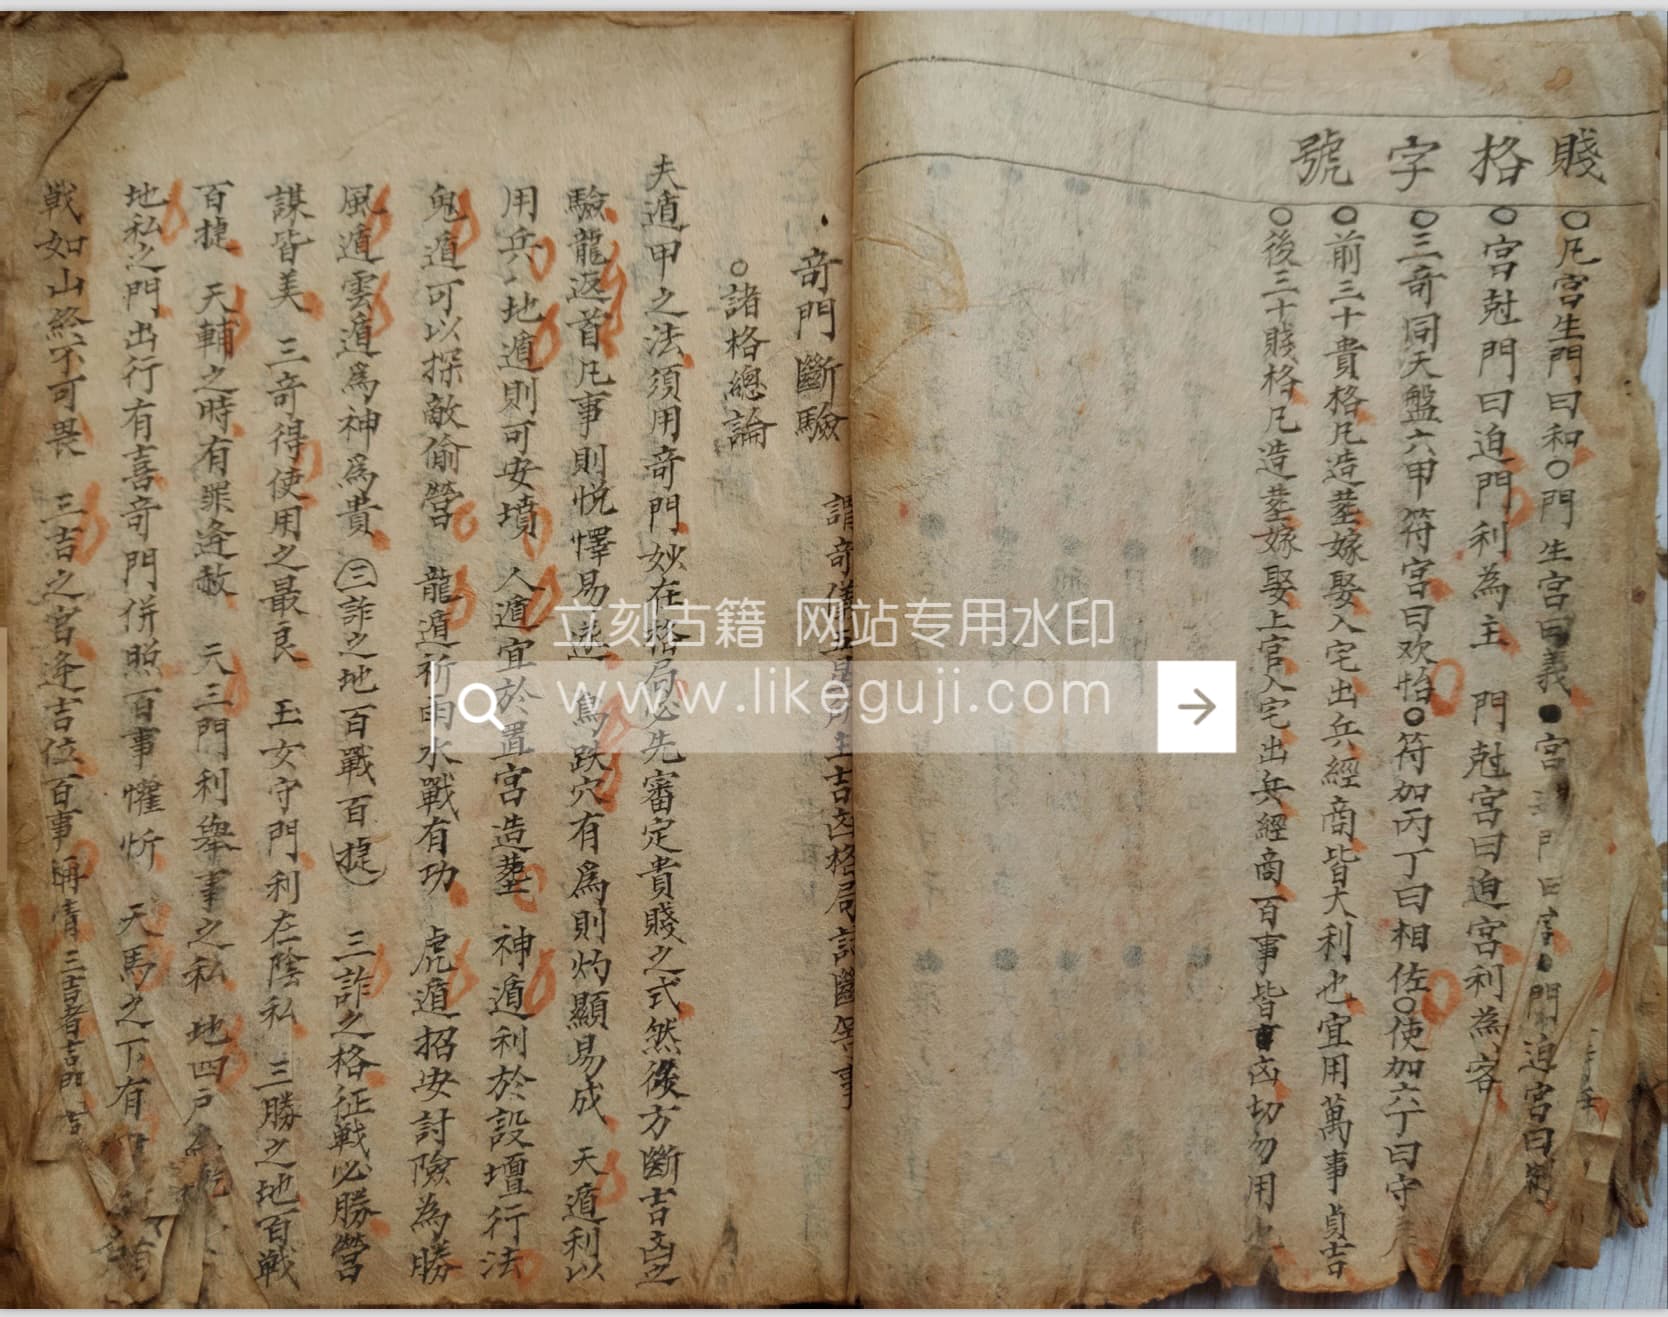 賤格字號
○凡宮生門曰和○門生宮曰義●宮 門曰害●門迫宮曰制
○宮尅門曰迫門利為主 門尅宮曰迫宮利為客
○三奇同天盤六甲符宮曰欢怡○符加丙丁曰相佐○使加六丁曰守
○前三十貴格凡造塟嫁娶入宅出兵經商皆大利也宜用萬事貞吉
○後三十賤格凡造塟嫁娶上官入宅出兵經商百事皆凶切勿用
奇門斷驗
謂奇 吉凶格局 斷等事
○諸格總論
夫遁甲之法須用奇門妙在格局必先審定貴賤之式然後方斷吉凶之
驗龍返首凡事則悦懌易遂 鳥跌穴有爲則灼顯易成 天遁利以
用兵 地遁則可安墳 人遁宜於置宮造塟 神遁利於設壇行法
鬼遁可以探敵偷營 龍遁祈雨水戰有功 虎遁招安討險為勝
風遁雲遁爲神爲貴 三詐之地百戰百捷 三詐之格征戦必勝營
謀皆美 三奇得使用之最良 玉女守門利在陰私 三勝之地百戦
百捷 天輔之時有罪逄赦 天三門利舉事之私 地四戸為
地私之門出行有喜奇門併照百事懽忻 天馬之下有
戦如山終不可畏 三吉之宮逄吉位百事稱情三吉者吉門 吉
立刻古籍 网站专用水印
www.likeguji.com